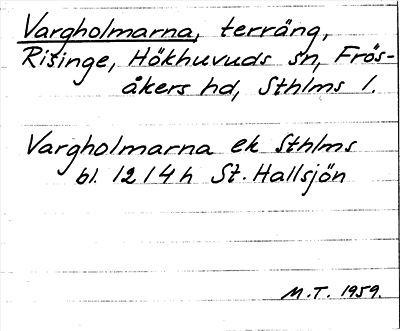 Vargholmarna, terräng,
Risinge, Hökhuvuds sn, Frös-
åkers hd, Sthlms l.
Vargholmarna ek Sthlms
bl. 12 I 4 h St. Hallsjön
M.T. 1959.